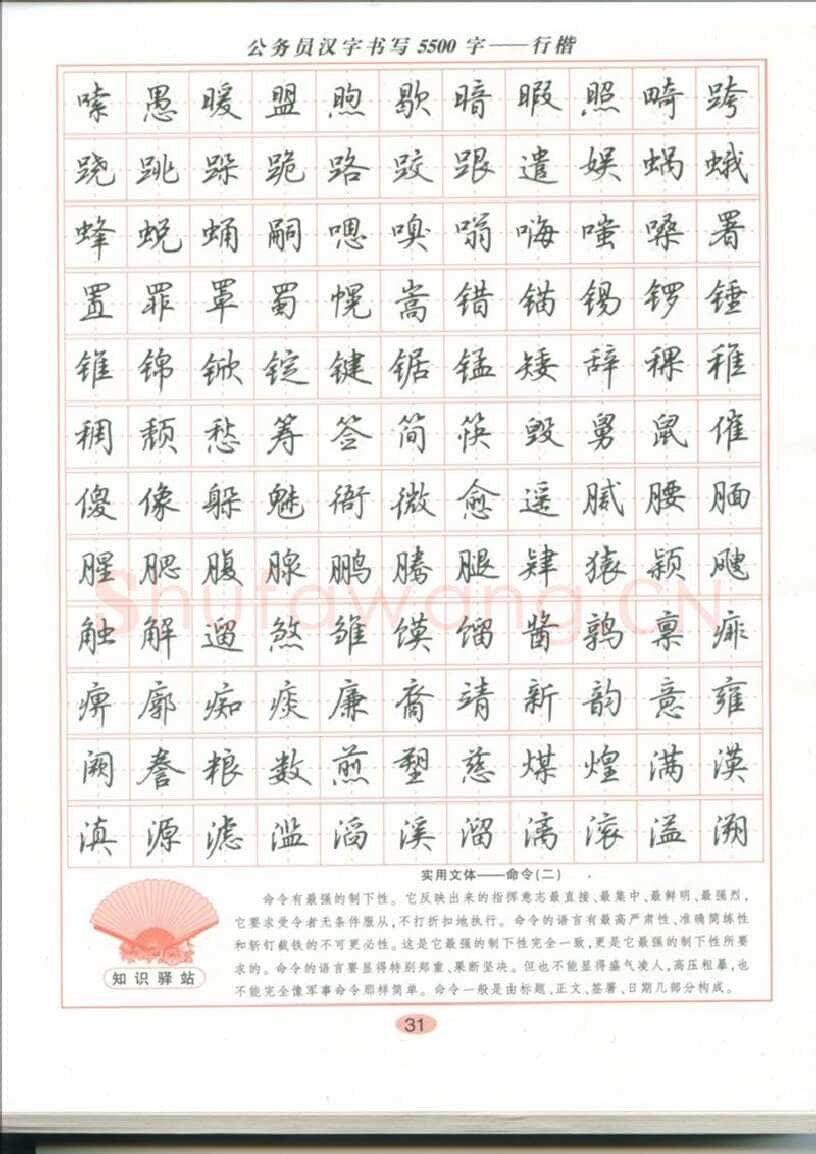 公务员汉字书写5500字——行楷
嗦愚暖盟煦歇暗暇照畸跨
跷跳跺跪路跤跟遣娱蜗蛾
蜂蜕蛹嗣嗯嗅嗡嗨嗤嗓署
置罪罩蜀幌嵩错锚锡锣锤
锥锦锨锭键锯锰矮辞稞稚
稠颓愁筹签简筷毁舅鼠催
傻像躲魅衙微愈遥腻腰腼
腥腮腹腺鹏腾腿肆猿颖飕
触解遛煞雏馍馏酱鹑禀痱
痹廓痴痰廉裔靖新韵意雍
阙誊粮数煎塑慈煤煌满漠
滇源滤滥滔溪溜漓滚溢溯
实用文体——命令(二)
命令有最强的制下性。它反映出来的指挥意志最直接、最集中、最鲜明、最强烈,
它要求受令者无条件服从,不打折扣地执行。命令的语言有最高严肃性、准确简练性
和斩钉截铁的不可更必性。这是它最强的制下性完全一致,更是它最强的制下性所要
求的。命令的语言要显得特别郑重、果断坚决。但也不能显得盛气凌人,高压粗暴,也
不能完全像军事命令那样简单。命令一般是由标题、正文、签署、日期几部分构成。
知识驿站
31
Shufawang.CN